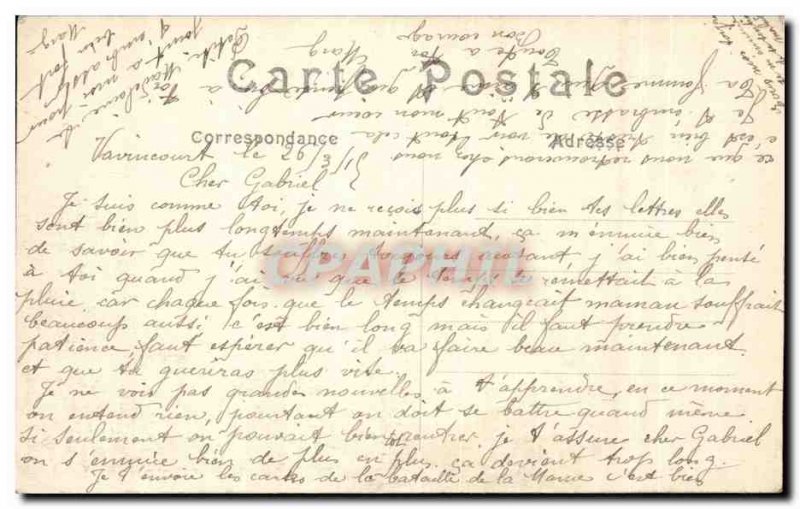 Carte Postale
Correspondance
Adresse
Vavincourt le 26/3/15
Cher Gabriel
Je suis comme toi, je ne reçois plus si bien tes lettres elles
sont bien plus longtemps maintenant, ça m'ennuie bien
de savoir que tu souffres toujours autant, j'ai bien pensé
à toi quand j'ai vu que le temps se remettait à la
pluie car chaque fois que le temps changeait maman souffrait
beaucoup aussi, c'est bien long mais il faut prendre
patience faut espérer qu'il va faire beau maintenant
et que tu guériras plus vite.
Je ne vois pas grandes nouvelles à t'apprendre, en ce moment
on entend rien, pourtant on doit se battre quand même
si seulement on pouvait bien rentrer, je t'assure cher Gabriel
on s'ennuie bien de plus en plus, ça devient trop long.
Je t'envoie les cartes de la bataille de la Marne c'est bien
ce que nous retrouverons chez nous
c'est bien triste de voir tout cela
Je t'embrasse de tout mon coeur
Ta femme qui pense à
toi
Toute à toi Marg
Bon courage
CPAPHIL